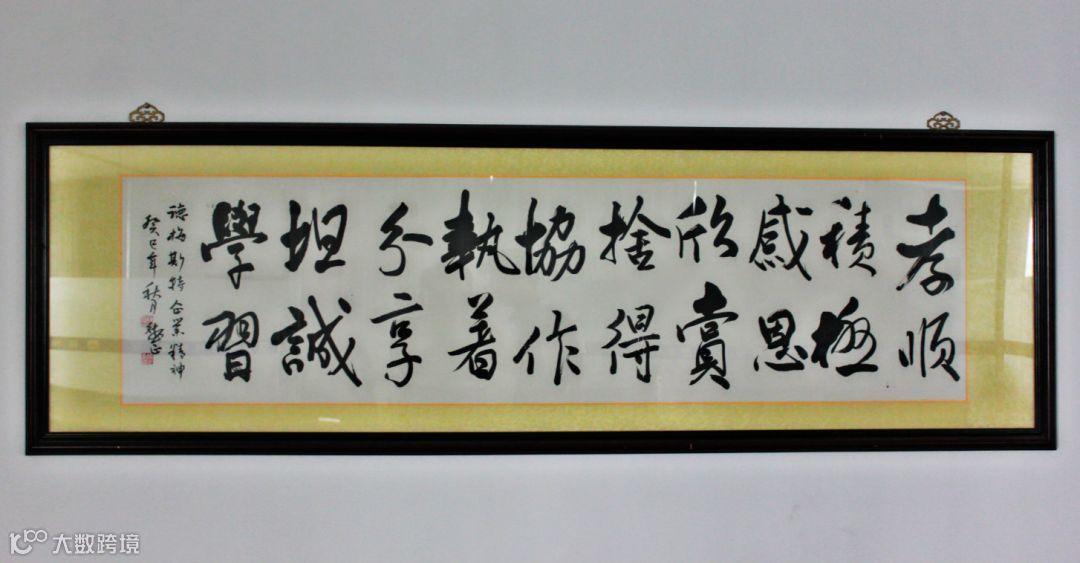 孝順
積極
感恩
欣賞
捨得
協作
執著
分享
坦誠
學習
德梅斯特企業精神
癸巳年秋月
大数跨境